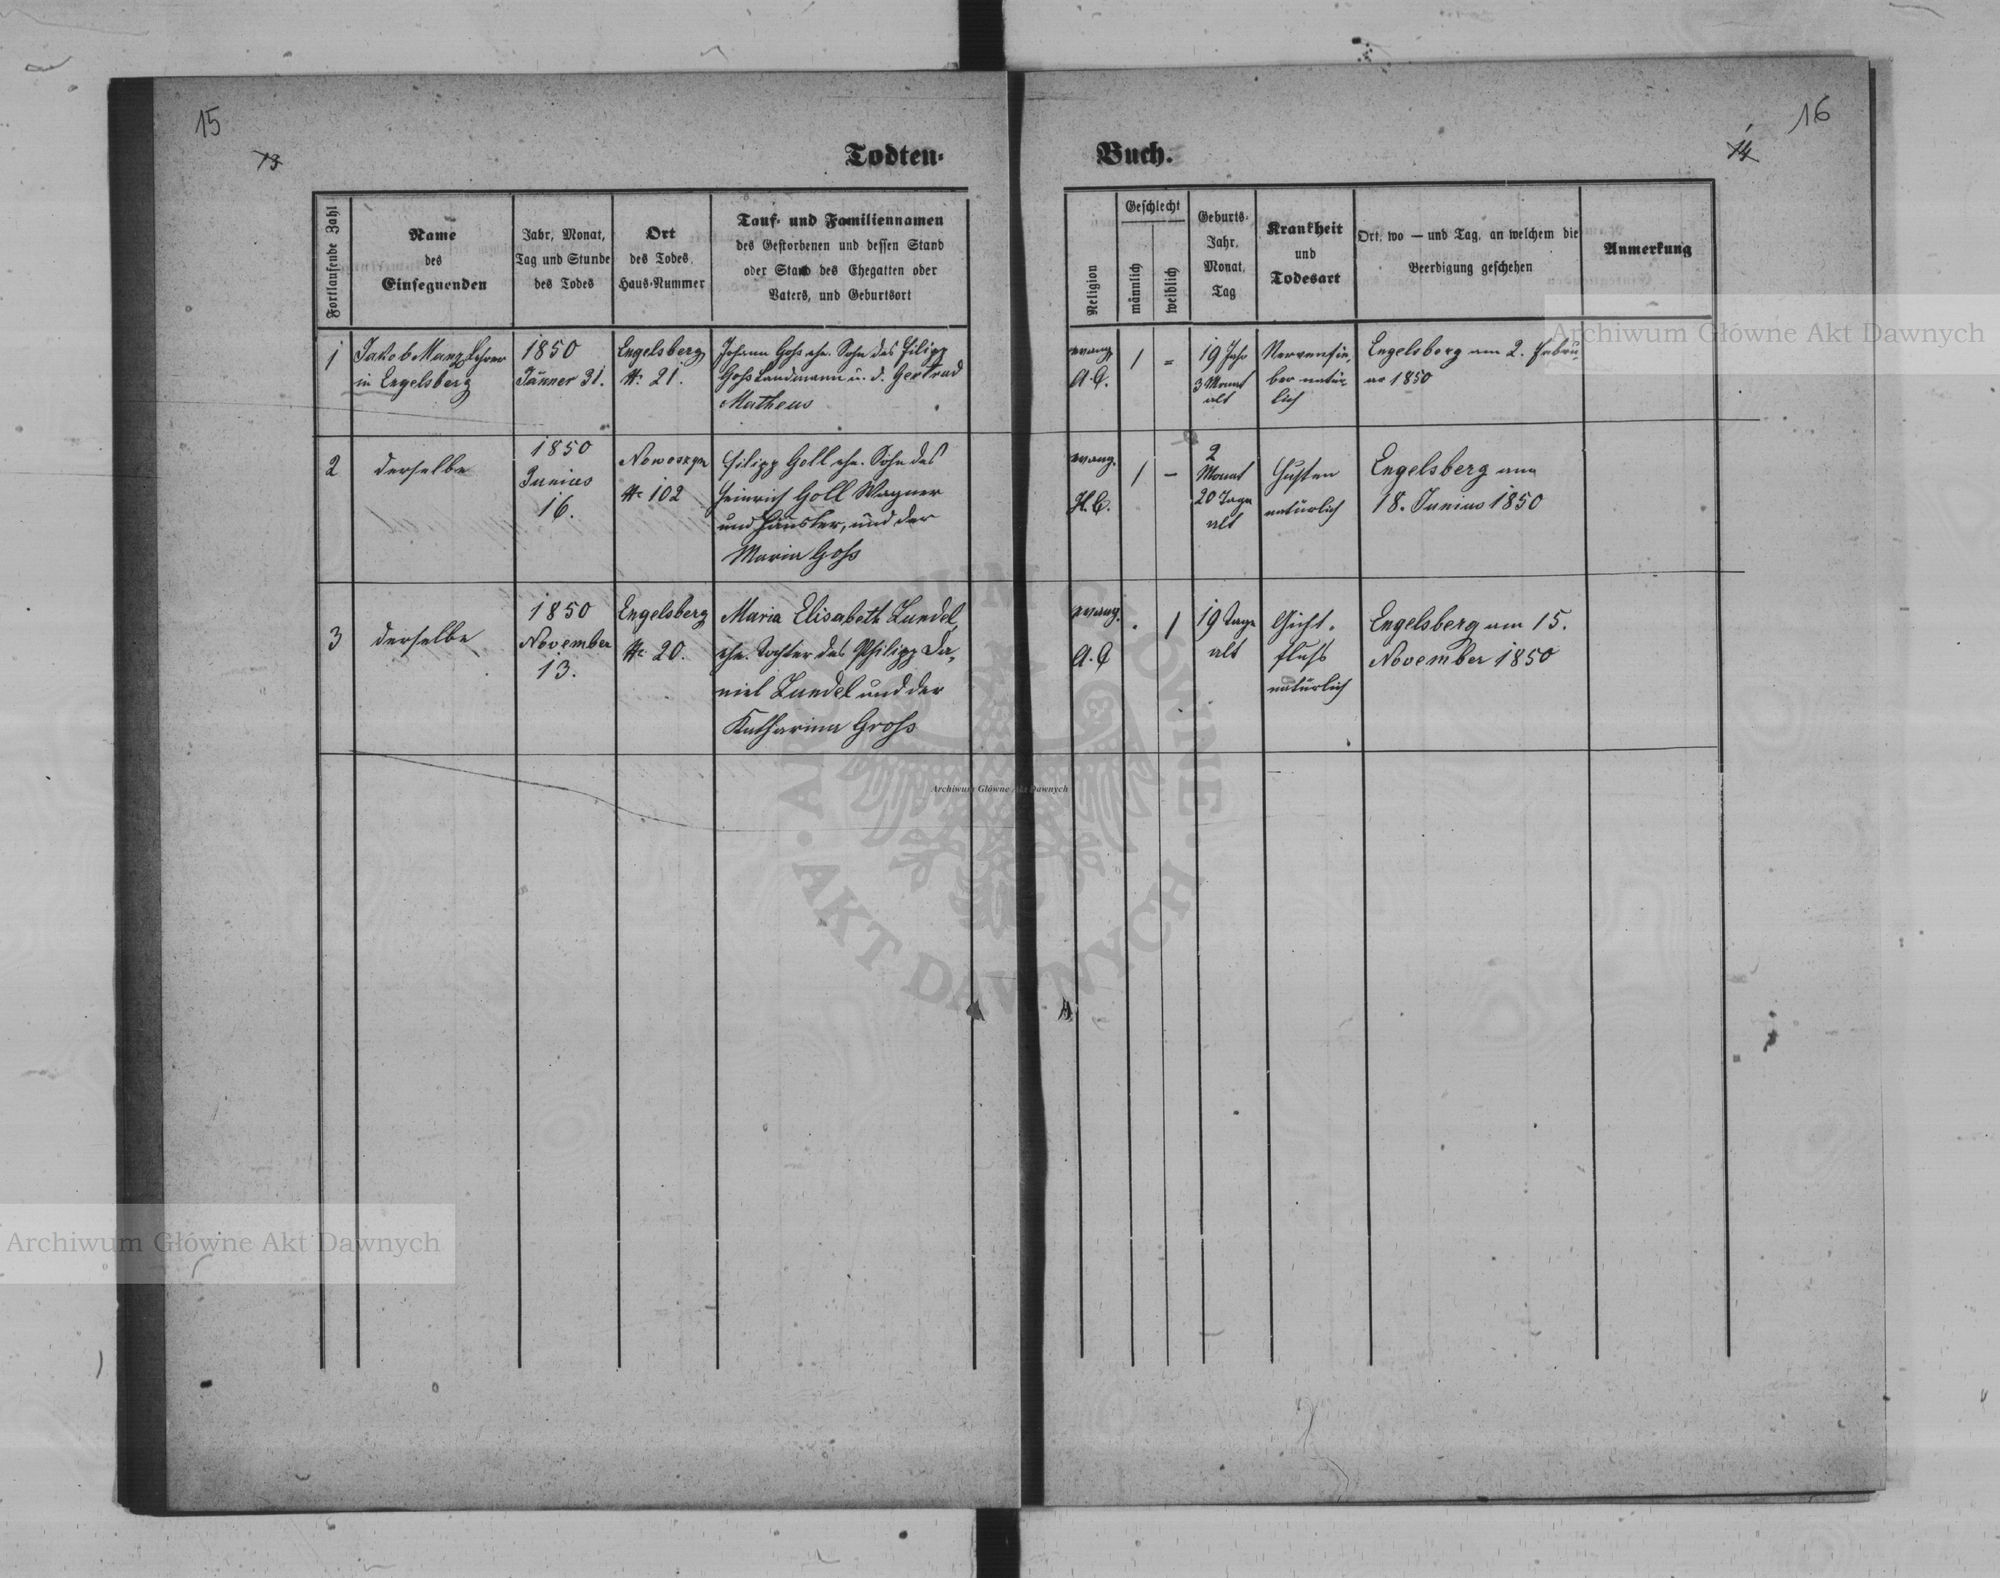 15
13
Todten-
Fortlaufende Zahl
Name
des
Einsegnenden
Jahr, Monat,
Tag und Stunde
des Todes
Ort
des Todes,
Haus-Nummer
Tauf- und Familiennamen
des Gestorbenen und dessen Stand
oder Stand des Ehegatten oder
Vaters, und Geburtsort
1
Jakob Manz Lehrer
in Engelsberg
1850
Jänner 31.
Engelsberg
Nr. 21.
Johann Gohs ehe. Sohn des Filipp
Gohs Landmann u. d. Gertrud
Matheus
2
derselbe
1850
Junius
16.
Nr. 102
Filipp Goll ehe. Sohn des
Heinrich Goll Wagner
und Häusler, und der
Maria Gohs
3
derselbe
1850
November
13.
Engelsberg
Nr. 20.
Maria Elisabeth
ehe. Tochter des Philipp Da-
niel und der
Katharina Grohs
16
14
Buch.
Religion
Geschlecht
männlich
weiblich
Geburts-
Jahr,
Monat,
Tag
Krankheit
und
Todesart
Ort, wo — und Tag, an welchem die
Beerdigung geschehen
Anmerkung
evang.
A. C.
1
=
19 Jahr
3 Monat
alt
Nervenfie-
ber natür-
lich
Engelsberg am 2. Febru
ar 1850
evang.
H. C.
1
–
2
Monat
20 Tage
alt
Husten
natürlich
Engelsberg am
18. Junius 1850
evang.
A. C
.
1
19 Tage
alt
Gicht-
fluhs
natürlich
Engelsberg am 15.
November 1850
Archiwum Główne Akt Dawnych
Archiwum Główne Akt Dawnych
Archiwum Główne Akt Dawnych